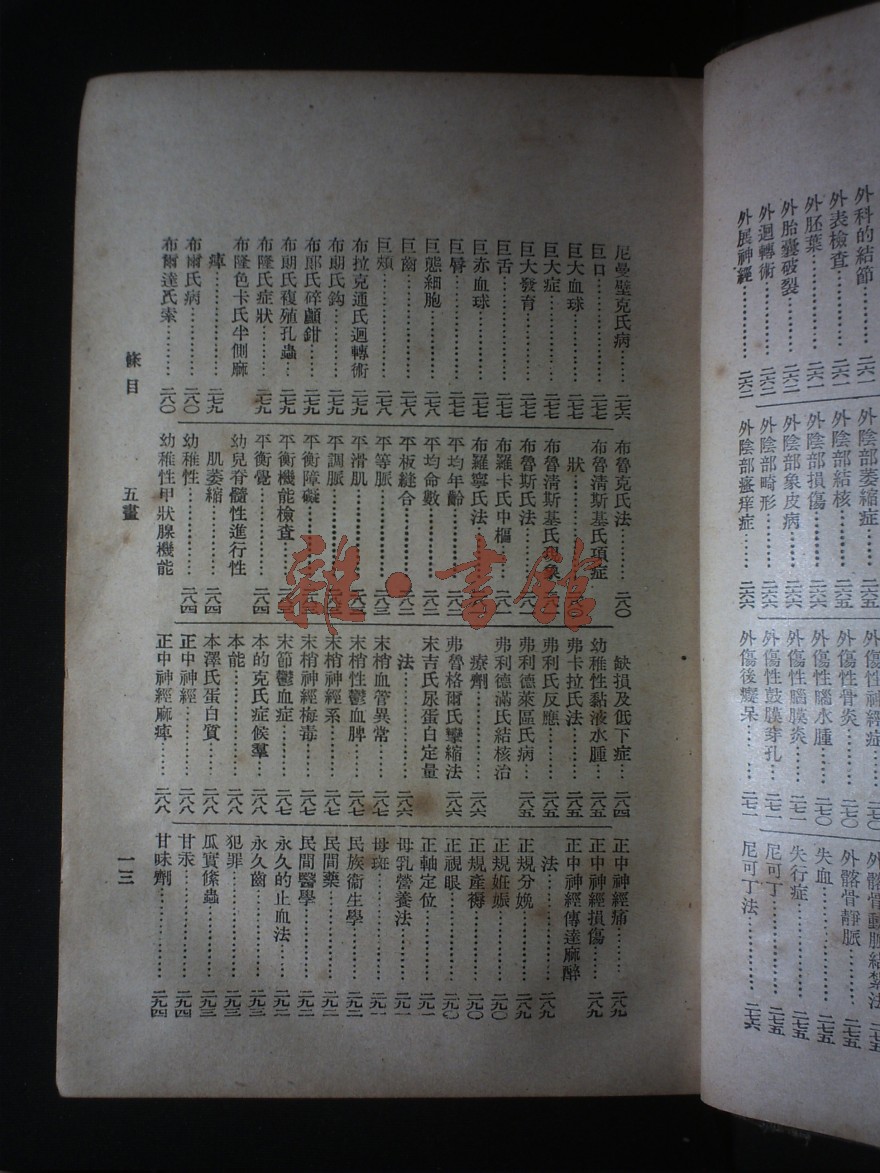 外科的結節……二六一
外表檢查……二六一
外胚葉……二六一
外胎囊破裂……二六二
外迴轉術……二六二
外展神經……二六二
外陰部萎縮症……二六五
外陰部結核……二六五
外陰部損傷……二六六
外陰部象皮病……二六六
外陰部畸形……二六六
外陰部瘙痒症……二六六
外傷性神經症……二七〇
外傷性骨炎……二七〇
外傷性腦水腫……二七〇
外傷性腦膜炎……二七一
外傷性鼓膜穿孔……二七一
外傷後癡呆……二七一
外髂骨動脈結紮法……二七五
外髂骨靜脈……二七五
失血……二七五
失行症……二七五
尼可丁……二七五
尼可丁法……二七六
尼曼壁克氏病……二七六
巨口……二七七
巨大血球……二七七
巨大症……二七七
巨大發育……二七七
巨舌……二七七
巨赤血球……二七七
巨唇……二七七
巨態細胞……二七八
巨齒……二七八
巨頰……二七八
布拉克通氏迴轉術……二七九
布朗氏鈎……二七九
布郎氏碎顱鉗……二七九
布朗氏複殖孔蟲……二七九
布隆氏症狀……二七九
布隆色卡氏半側麻
痺……二七九
布爾氏病……二八〇
布爾達氏索……二八〇
布魯克氏法……二八〇
布魯清斯基氏項症
狀……二八〇
布魯清斯基氏現象
布魯斯氏法……二八一
布羅卡氏中樞……二八一
布羅寧氏法……二八二
平均年齡……二八二
平均命數……二八二
平板縫合……二八二
平等脈……二八三
平滑肌……二八三
平調脈……二八三
平衡障礙……二八三
平衡機能檢查……二八三
平衡覺……二八四
幼兒脊髓性進行性
肌萎縮……二八四
幼稚性……二八四
幼稚性甲狀腺機能
缺損及低下症……二八四
幼稚性黏液水腫……二八五
弗卡拉氏法……二八五
弗利氏反應……二八五
弗利德萊區氏病……二八五
弗利德滿氏結核治
療劑……二八六
弗魯格爾氏攣縮法……二八六
末吉氏尿蛋白定量
法……二八六
末梢血管異常……二八七
末梢性鬱血脾……二八七
末梢神經系……二八七
末梢神經梅毒……二八七
末節鬱血症……二八七
本的克氏症候羣……二八七
本能……二八八
本澤氏蛋白質……二八八
正中神經……二八八
正中神經麻痺……二八八
正中神經痛……二八九
正中神經損傷……二八九
正中神經傳達麻醉
法……二八九
正規分娩……二八九
正規妊娠……二九〇
正規產褥……二九〇
正視眼……二九〇
正軸定位……二九一
母乳營養法……二九一
母斑……二九一
民族衛生學……二九二
民間藥……二九二
民間醫學……二九二
永久的止血法……二九二
永久齒……二九三
犯罪……二九三
瓜實絛蟲……二九三
甘汞……二九四
甘味劑……二九四
條目 五畫 一三
雜·書館